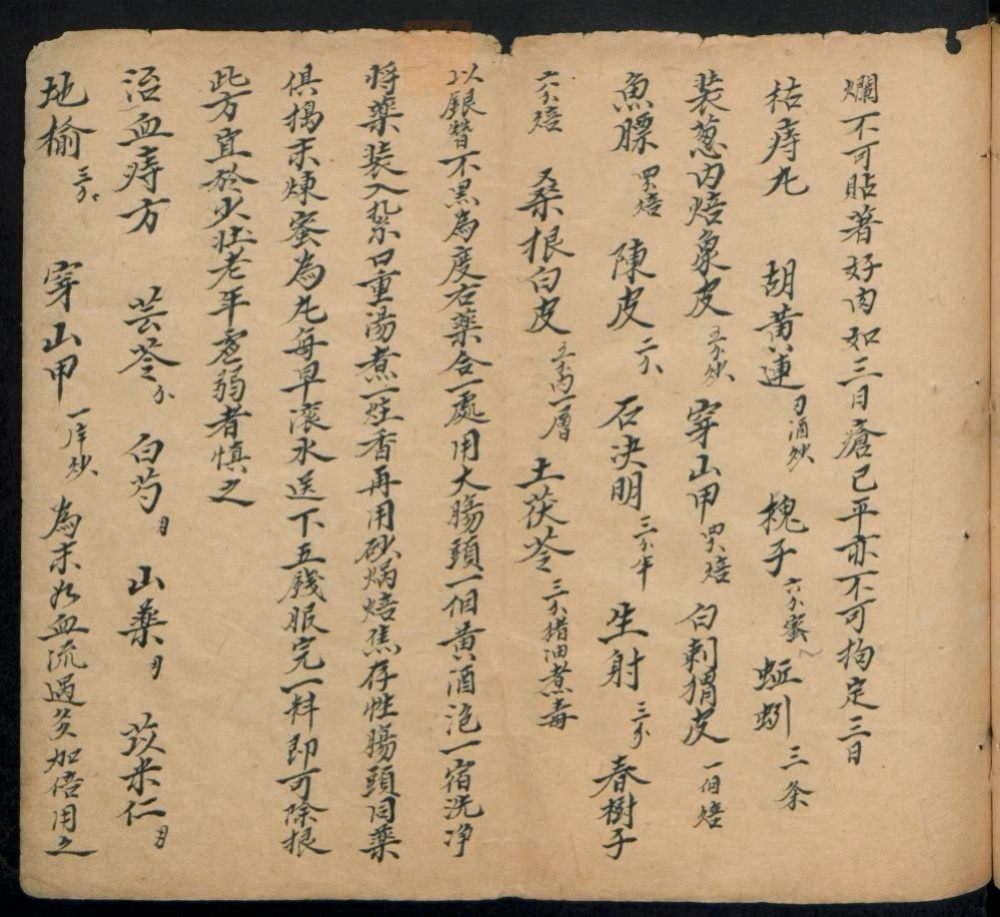 爛不可貼著好肉如三日瘡已平亦不可拘定三日
枯痔九 胡黃連 酒炒 槐子 六分蜜 蚯蚓 三条
装葱内焙象皮 炒 穿山甲 焙 白刺猬皮 一個焙
魚膘 焙 陳皮 二 石決明 三 半 生射 三 春樹子
六 焙 桑根白皮 一層 土茯苓 三 猪油煮毒
以銀簪不黑為度右藥合一處用大腸頭一個黃酒泡一宿洗净
将藥装入紮口重湯煮一炷香再用砂焙焦存性腸頭同藥
俱搗末煉蜜為丸每早滚水送下五錢服完一料即可除根
此方宜於少壯老年虚弱者慎之
治血痔方 芸苓 白芍 山藥 苡米仁
地榆 三 穿山甲 一 炒 為末如血流過多加倍用之